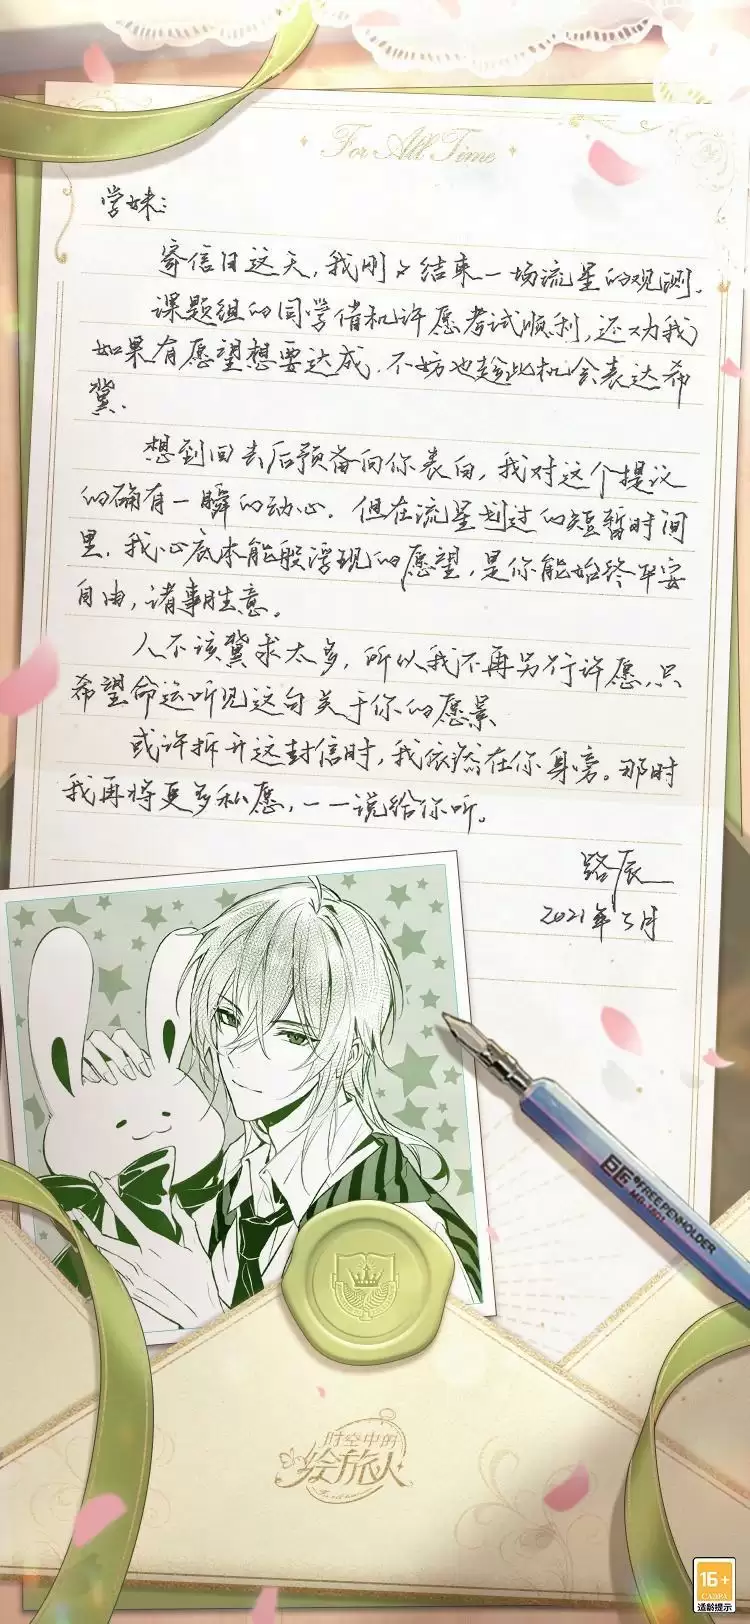 For All Time
学妹：
寄信日这天，我刚刚结束一场流星的观测。
课题组的同学借机许愿考试顺利，还劝我
如果有愿望想要达成，不妨也趁此机会表达希
冀。
想到回去后预备向你表白，我对这个提议
的确有一瞬的动心。但在流星划过的短暂时间
里，我心底本能般浮现的愿望，是你能始终平安
自由，诸事胜意。
人不该冀求太多，所以我不再另行许愿，只
希望命运听见这句关于你的愿景
或许拆开这封信时，我依然在你身旁。那时
我再将更多私愿，一一说给你听。
路辰
2021年3月
巨匠®FREEPENHOLDER
MB-1801
时空中的
绘旅人
For all time
16+
CADPA
适龄提示